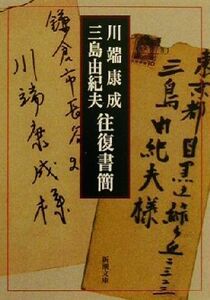 川端康成
三島由紀夫
往復書簡
東京都
目黒区緑ヶ丘二三二三
三島由紀夫様
鎌倉市長谷
川端康成様
新潮文庫